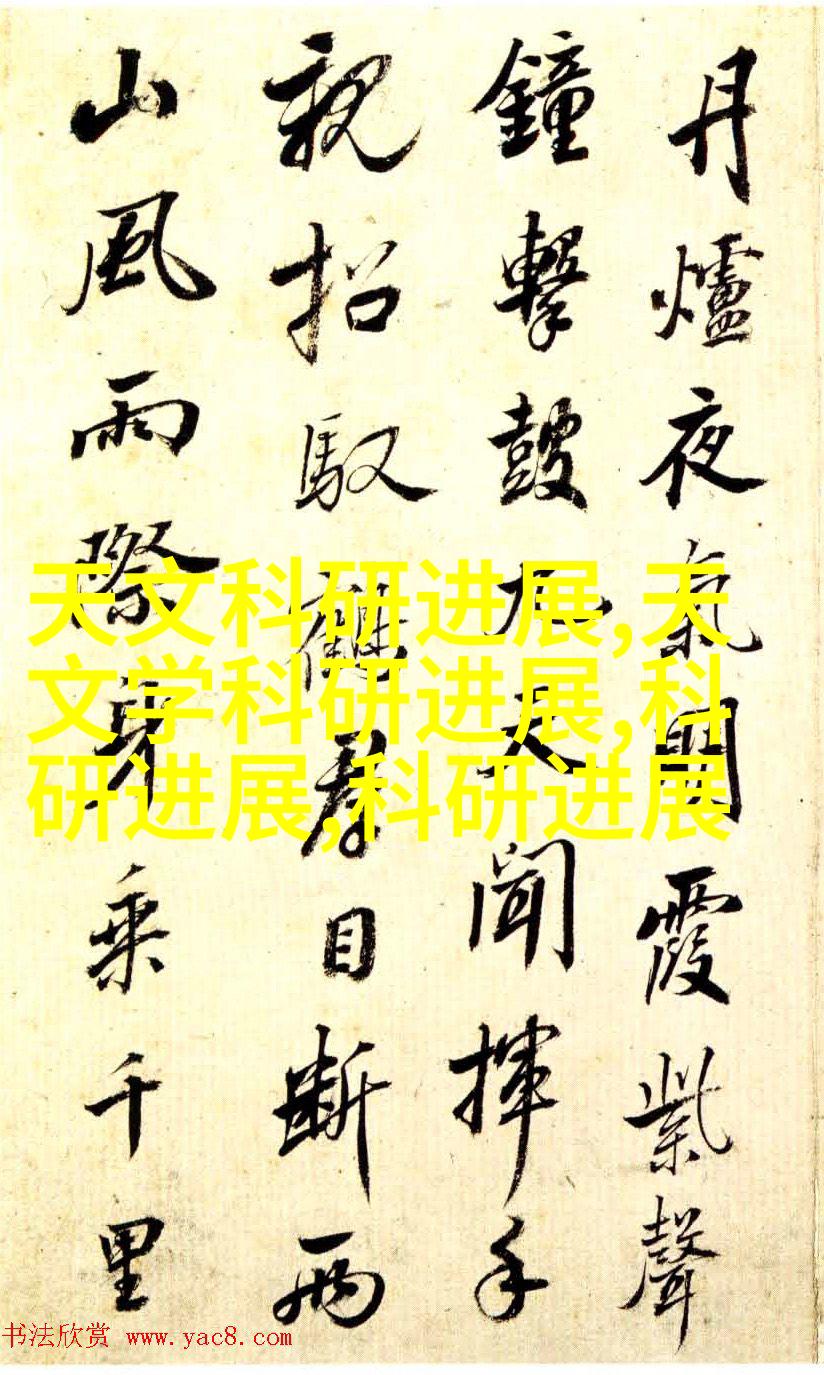 丹爐夜氣明霞紫聲
鐘擊鼓九天聞揮手
親招馭鶴群目斷兩
山風雨際身乘千里
天文科研进展,天
文学科研进展,科
研进展,科研进展
书法欣赏 www.yac8.com